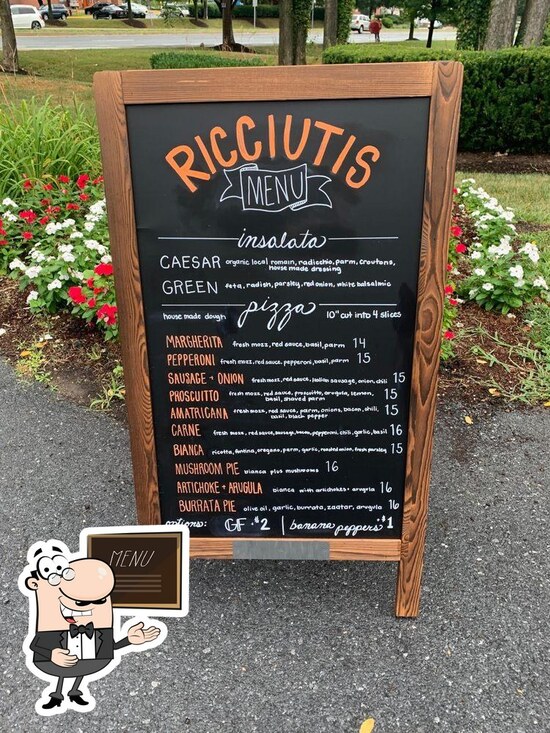 RICCIUTIS
MENU
insalata
CAESAR organic local romain, radicchio, parm, croutons,
house made dressing
GREEN feta, radish, parsley, red onion, white balsalmic
pizza
house made dough 10" cut into 4 slices
MARGHERITA fresh mozz, red sauce, basil, parm 14
PEPPERONI fresh mozz, red sauce, pepperoni, basil, parm 15
SAUSAGE + ONION fresh mozz, red sauce, italian sausage, onion, chili 15
PROSCUITTO fresh mozz, red sauce, proscuitto, arugula, lemon, 15
basil, shaved parm
AMATRICANA fresh mozz, red sauce, parm, onions, bacon, chili, 15
basil, black pepper
CARNE fresh mozz, red sauce, sausage, bacon, pepperoni, chili, garlic, basil 16
BIANCA ricotta, fontina, oregano, parm, garlic, roasted onion, fresh parsley 15
MUSHROOM PIE bianca plus mushrooms 16
ARTICHOKE + ARUGULA bianca with artichokes + arugula 16
BURRATA PIE olive oil, garlic, burrata, zaatar, arugula 16
options: GF · $2 | banana peppers $1
MENU